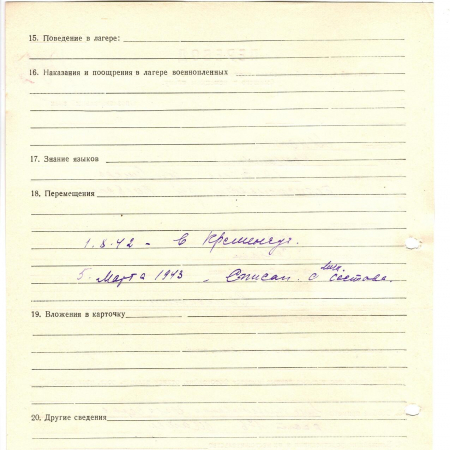 15. Поведение в лагере:
16. Наказания и поощрения в лагере военнопленных
17. Знание языков
18. Перемещения
1.8.42 - в Кременчуг.
5. Марта 1943 - Списан. с лич. состава.
19. Вложения в карточку
20. Другие сведения